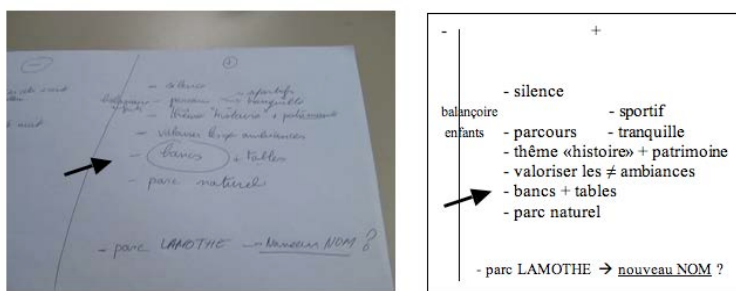 - +
- silence
balançoire - sportif
enfants - parcours - tranquille
- thème "histoire" + patrimoine
- valoriser les ≠ ambiances
- bancs + tables
- parc naturel
- parc LAMOTHE → nouveau NOM ?
- +
- silence
balançoire - sportif
enfants - parcours - tranquille
- thème «histoire» + patrimoine
- valoriser les ≠ ambiances
- bancs + tables
- parc naturel
- parc LAMOTHE → nouveau NOM ?